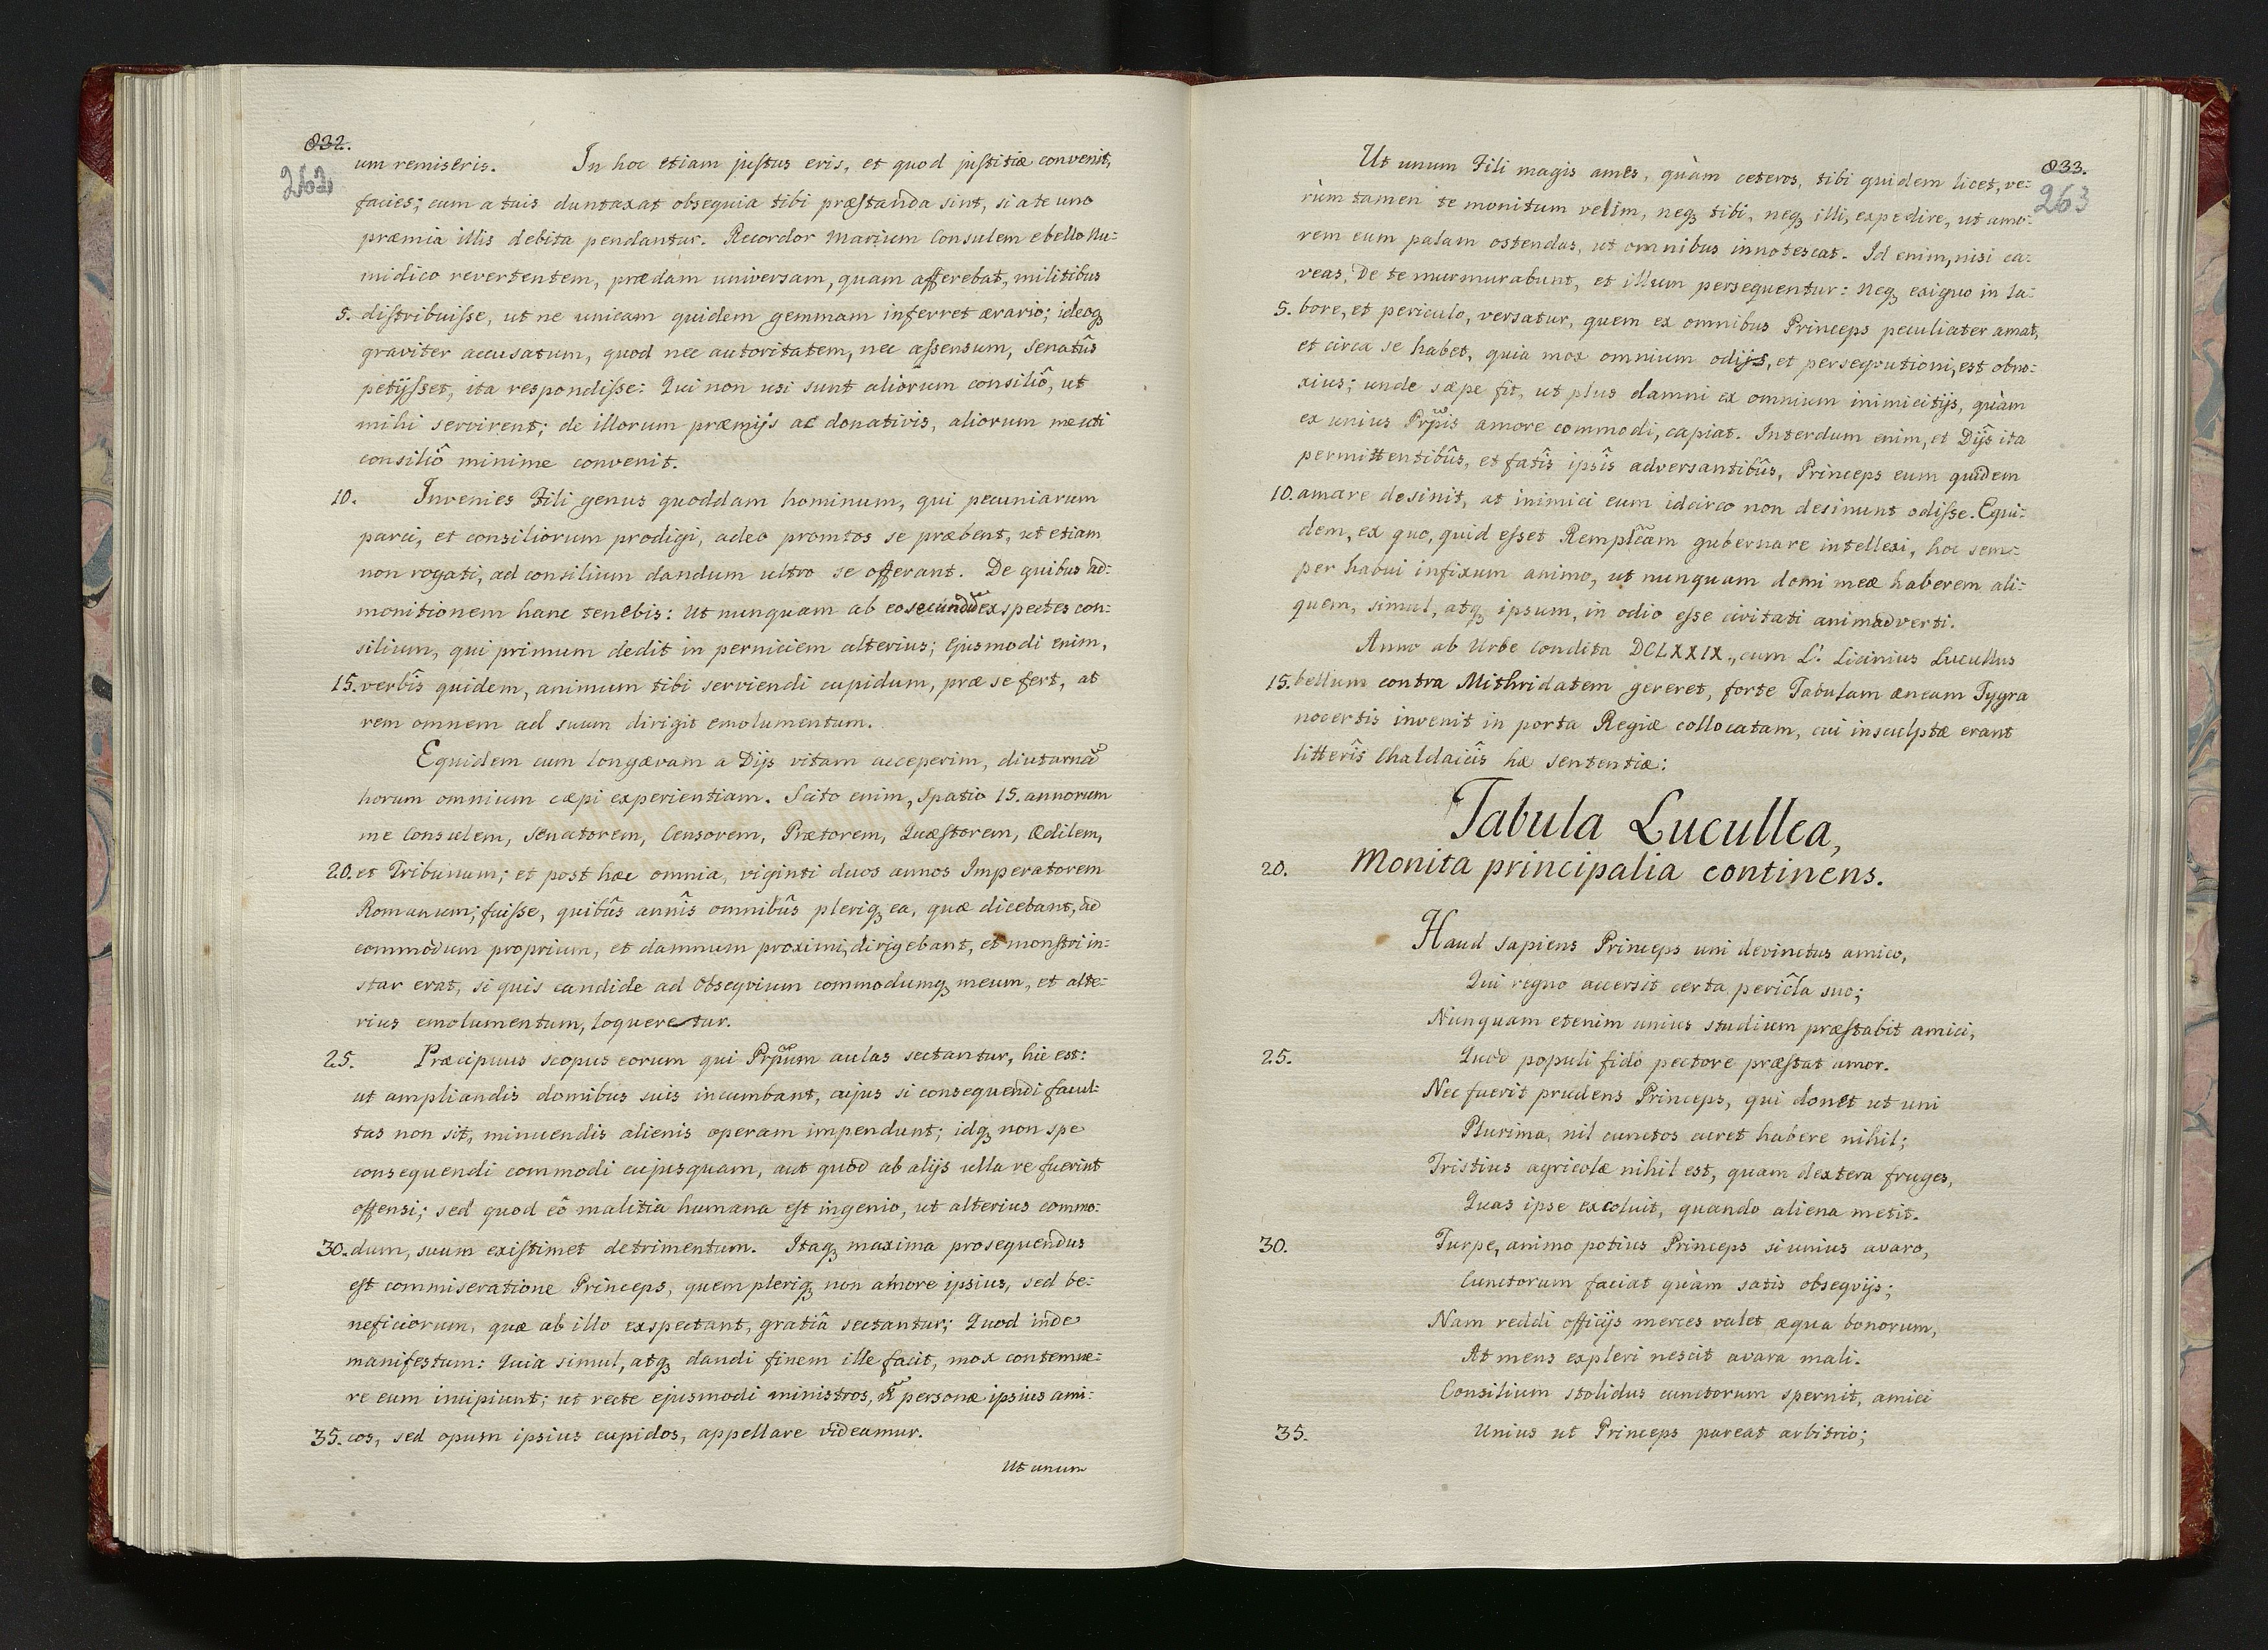 832.
262
um remiseris. In hoc etiam justus eris, et quod justitiæ convenit,
facies; cum a tuis duntaxat obsequia tibi præstanda sint, si a te uno
præmia illis debita pendantur. Recordor Marium Consulem e bello Nu:
midico revertentem, prædam universam, quam afferebat, militibus
5. distribuisse, ut ne unicam quidem gemmam inferret ærario; ideoq
graviter accusatum, quod nec autoritatem, nec assensum, Senatûs
petijsset, ita respondisse: Qui non usi sunt aliorum consiliô, ut
mihi servirent; de illorum præmijs ac donativis, aliorum me uti
consiliô minime convenit.
10. Invenies Fili genus quoddam hominum, qui pecuniarum
parci, et consiliorum prodigi, adeo promtos se præbent, ut etiam
non rogati, ad consilium dandum ultro se offerant. De quibus ad:
monitionem hanc tenebis: Ut nunquam ab eo secundu exspectes con:
silium, qui primum dedit in perniciem alterius; Ejusmodi enim,
15. verbîs quidem, animum tibi serviendi cupidum, præ se fert, at
rem omnem ad suum dirigit emolumentum.
Equidem cum longævam a Dijs vitam acceperim, diuturnã
horum omnium cæpi experientiam. Scito enim, Spatio 15. annorum
me Consulem, Senatorem, Censorem, Prætorem, Quæstorem, Ædilem,
20. et Tribunum; et post hæc omnia, viginti duos annos Imperatorem
Romanum; fuisse, quibûs annîs omnibûs pleriq ea, quæ dicebant, ad
commodum proprium, et damnum proximi, dirigebant, et monstri in:
star erat, si quis candide ad Obseqvium commodumq meum, et alte:
rius emolumentum, loqueretur.
25. Præcipuus scopus eorum qui Prpum aulas sectantur, hic est:
ut ampliandis domibus suis incumbant, cujus si consequendi facul:
tas non sit, minuendis alienis operam impendunt; idq non spe
consequendi commodi cujusquam, aut quod ab alijs ulla re fuerint
offensi; sed quod eô malitia humana est ingenio, ut alterius commo:
30. dum, suum existimet detrimentum. Itaq maxima prosequendus
est commiseratione Princeps, quem pleriq non amore ipsius, sed be:
neficiorum, quæ ab illo exspectant, gratiâ sectantur; Quod inde
manifestum: Quia simul, atq dandi finem ille facit, mox contemne:
re eum incipiunt; ut recte ejusmodi ministros, ñ personæ ipsius ami:
35. cos, sed opum ipsius cupidos, appellare videamur.
Ut unum
833.
263
Ut unum Fili magis ames, quàm ceteros, tibi quidem licet, ve:
rùm tamen te monitum velim, neq tibi, neq illi, expedire, ut amo:
rem eum palam ostendas, ut omnibus innotescat. Id enim, nisi ca:
veas, De te murmurabunt, et illum persequentur: Neq exiguo in la:
5. bore, et periculo, versatur, quem ex omnibus Princeps peculiater amat,
et circa se habet, quia mox omnium odijs, et perseqvutioni, est obno:
xius; unde sæpe fit, ut plus damni ex omnium inimicitijs, quàm
ex unius Prpis amore commodi, capiat. Interdum enim, et Dijs ita
permittentibûs, et fatîs ipsîs adversantibûs, Princeps eum quidem
10. amare desinit, at inimici eum idcirco non desinunt odisse. Equi:
dem, ex quo, quid esset Rempłcam gubernare intellexi, hoc sem:
per habui infixum animo, ut nunquam domi meæ haberem ali:
quem, simul, atq ipsum, in odio esse civitati animadverti.
Anno ab Urbe Condita DCLXXIX., cum L. Licinius Lucullus
15. bellum contra Mithridatem gereret, forte Tabulam æneam Tygra
nocertis invenit in porta Regiæ collocatam, cui insculptæ erant
litterîs Chaldaicîs hæ sententiæ:
Tabula Lucullea,
20. Monita principalia continens.
Haud sapiens Princeps uni devinctus amico,
Qui regno accersit certa perîcla suo;
Nunquam etenim unius studium præstabit amici,
25. Quod populi fido pectore præstat amor.
Nec fuerit prudens Princeps, qui donet ut uni
Plurima, nil cunctos curet habere nihil;
Tristius agricolæ nihil est, quam dextera fruges,
Quas ipse excoluit, quando aliena metit.
30. Turpe, animo potius Princeps si unius avaro,
Cunctorum faciat quàm satis obseqvijs;
Nam reddi officijs merces valet æqua bonorum,
At mens expleri nescit avara mali.
Consilium stolidus cunctorum spernit, amici
35. Unius ut Princeps pareat arbitrio;